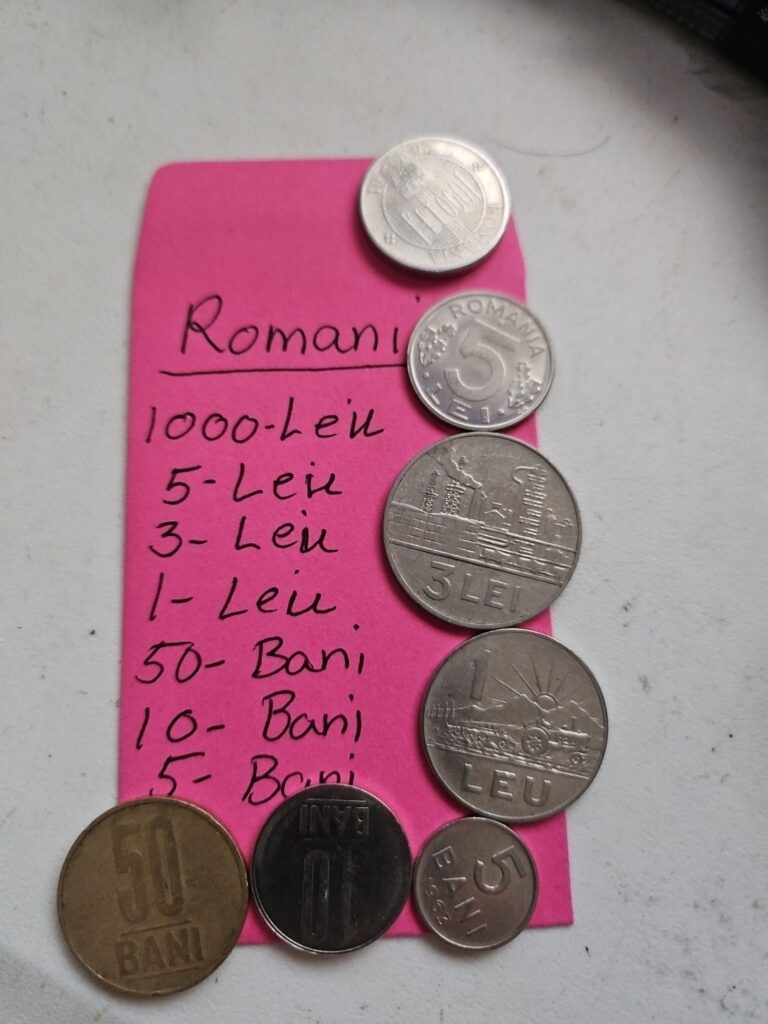 Romani
1000-Leiu
5-Leiu
3-Leiu
1-Leiu
50-Bani
10-Bani
5-Bani
ROMANIA
1000 LEI
ROMANIA
5
LEI
3 LEI
1
LEU
50
BANI
10
BANI
5
BANI
1963